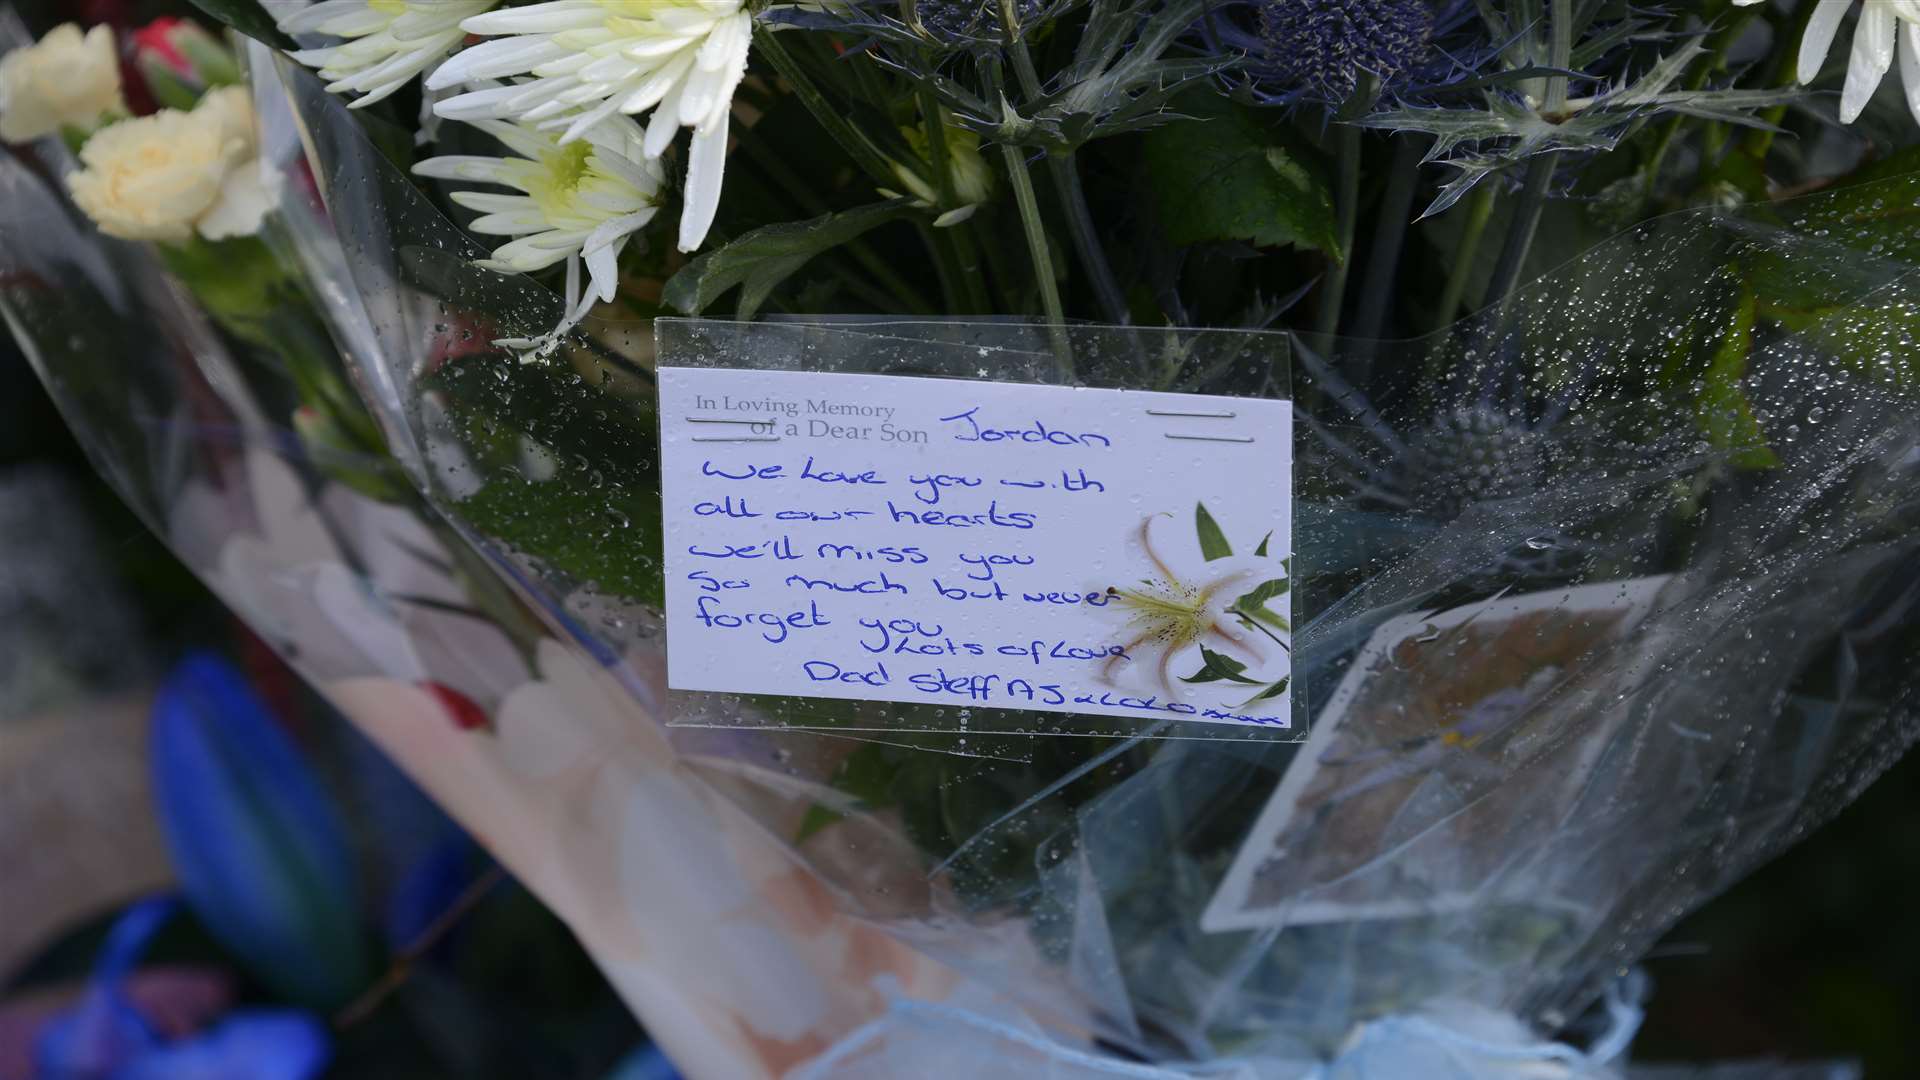 In Loving Memory
of a Dear Son Jordan
We Love you with
all our hearts
we'll miss you
So much but never
forget you
Lots of Love
Dad Steff AJ